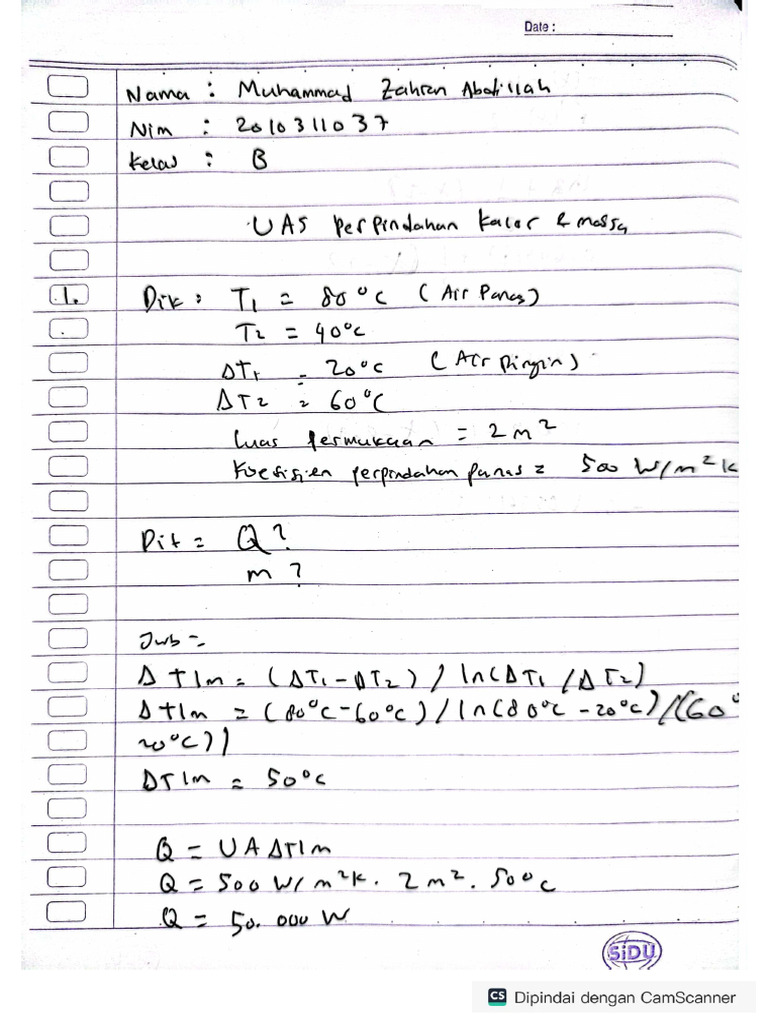 Date :
Nama : Muhammad Zahran Abdillah
Nim : 2010311037
Kelas : B
UAS Perpindahan Kalor & massa
1. Dik : T1 = 80°C (Air Panas)
T2 = 40°C
ΔT1 = 20°C (Air Dingin)
ΔT2 = 60°C
Luas Permukaan = 2 m²
Koefisien perpindahan panas = 500 W/m²K
Dit = Q?
m ?
Jwb =
ΔTlm = (ΔT1 - ΔT2) / ln(ΔT1 / ΔT2)
ΔTlm = (80°C - 60°C) / ln(80°C - 20°C) / (60°
20°C))
ΔTlm = 50°C
Q = U A ΔTlm
Q = 500 W/m²K . 2 m² . 50°C
Q = 50.000 W
SiDU
CS Dipindai dengan CamScanner